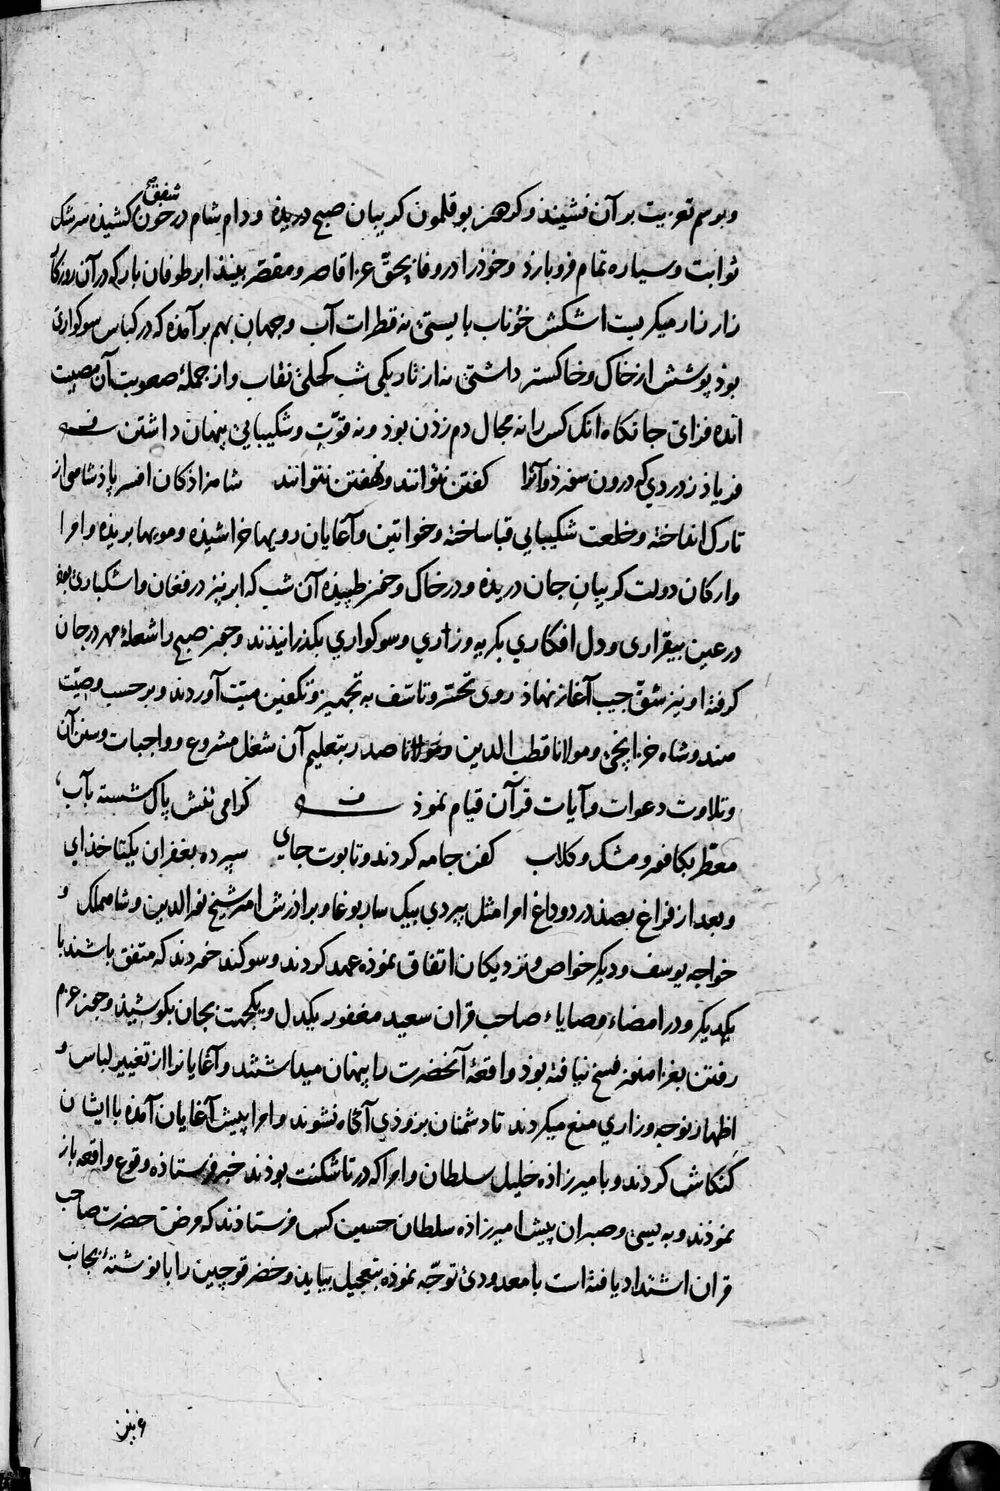 شفق صح
وبرسم تعزیت بر آن نشیند و کوهن بوقلمون کریبان صبح دریده و دام شام در خون کشیده سرشک
ثوابت وسیاره تمام فروبارد وخوذرا در وفا بحقّ عزا قاصر ومقصّر بیند ابر طوفان بار که در آن روزکار
زار زار میکریست اشکش خوناب بایستی نه قطرات آب وجهان بهم بر آمده که در لباس سوکواری
بوذ پوشش از خاک وخاکستر داشتی نه از تاریکی شب کحلی نقاب واز جملهٔ صعوبت آن مصیبت
انده فزای جانکاه انک کس را نه مجال دم زذن بوذ ونه قوّت وشکیبایی پنهان داشتن
فریاذ زدردی که درون سفرذ وآنرا کفتن نتوانند ونهفتن نتوانند شاهزاذکان افسر پاذشاهی از
تارک انداخته وخلعت شکیبایی قبا ساخته وخواتین وآغایان رویها خراشیذه ومویها بریذه وامرا
وارکان دولت کریبان جان دریده و در خاک وخون طپیذه آن شب که ابر نیز در فغان واشکباری بوذ
در عین بیقراری ودل افکاری بکریه وزاری وسوکواری بکذرانیذند وچون صبح را شعلهٔ مهر در جان
کرفته او نیز شقّ جیب آغاز نهاذ روی تحسّر وتاسّف به تجهیز وتکفین میّت آوردند وبر حسب وصیّت
هندوشاه خزانچی ومولانا قطب الدین ومولانا صدر بتعلیم آن شغل مشروع وواجبات وسنن آن
وتلاوت دعوات وآیات قرآن قیام نموذ کرامی تنش پاک شسته بآب
معطّر بکافور ومشک وکلاب کفن جامه کردند وتابوت جای سپرده بغفران یکتا خذای
وبعد از فراغ بصد درد وداغ امرا مثل پیردی بیک ساربوغا وبراذرش امیر شیخ نور الدین وشاهملک و
خواجه یوسف ودیکر خواص ونزدیکان اتفاق نموذه عهد کردند وسوکند خوردند که متفق باشند با
یکدیکر ودر امضاء وصایاء صاحب قران سعید مغفور یکدل ویکجهت بجان بکوشیذ وچون عزم
رفتن بغزا هنوز فسخ نیافته بوذ واقعهٔ آنحضرت را پنهان میداشتند وآغایانرا از تغییر لباس و
اظهار نوحه وزاری منع میکردند تا دشمنان بزوذی آکاه نشوند وامرا پیش آغایان آمده با ایشان
کنکاش کردند وبامیرزاذه خلیل سلطان وامرا که در تاشکنت بوذند خبر فرستاذه وقوع واقعه باز
نموذند وبه یسی وصبران پیش امیرزاذه سلطان حسین کس فرستاذند که مرض حضرت صاحب
قران اشتداد یافته است با معدودی توجّه نموذه بتعجیل بیایذ وخضر قوجین را با نوشتهٔ بجانب
غزنین